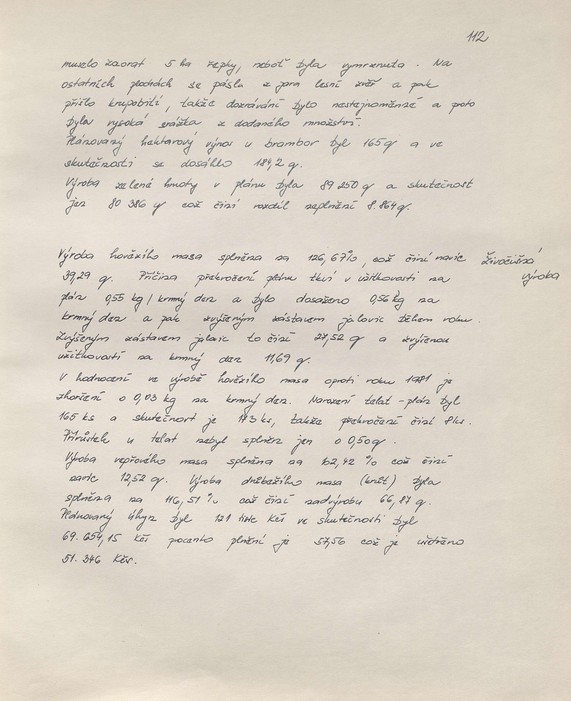 112
muselo zaorat 5 ha řepky, neboť byla vymrznuta. Na
ostatních plochách se pásla z jara lesní zvěř a pak
přišlo krupobití, takže dozrávání bylo nestejnoměrné a proto
byla vysoká srážka z dodaného množství.
Plánovaný hektarový výnos u brambor byl 165 q a ve
skutečnosti se dosáhlo 184,2 q.
Výroba zelené hmoty v plánu byla 89 250 q a skutečnost
jen 80 386 q což činí rozdíl neplnění 8.864 q.
Živočišná
výroba
Výroba hovězího masa splněna na 126,67%, což činí navíc
39,29 q. Příčina překročení plánu tkví v užitkovosti na
plán 0,55 kg/krmný den a bylo dosaženo 0,56 kg na
krmný den a pak zvýšeným zástavem jalovic během roku.
Zvýšeným zástavem jalovic to činí 27,52 q a zvýšenou
užitkovostí na krmný den 11,69 q.
V hodnocení ve výrobě hovězího masa oproti roku 1981 je
zhoršení o 0,03 kg na krmný den. Narození telat - plán byl
165 ks a skutečnost je 173 ks, takže překročení činí 8 ks.
Přírůstek u telat nebyl splněn jen o 0,50 q.
Výroba vepřového masa splněna na 102,42 % což činí
navíc 12,52 q. Výroba drůbežího masa (krůt) byla
splněna na 116,51 % což činí nadvýrobu 66,87 q.
Plánovaný úhyn byl 121 tisíc Kčs ve skutečnosti byl
69.654,15 Kčs procento plnění je 57,56 což je ušetřeno
51.346 Kčs.